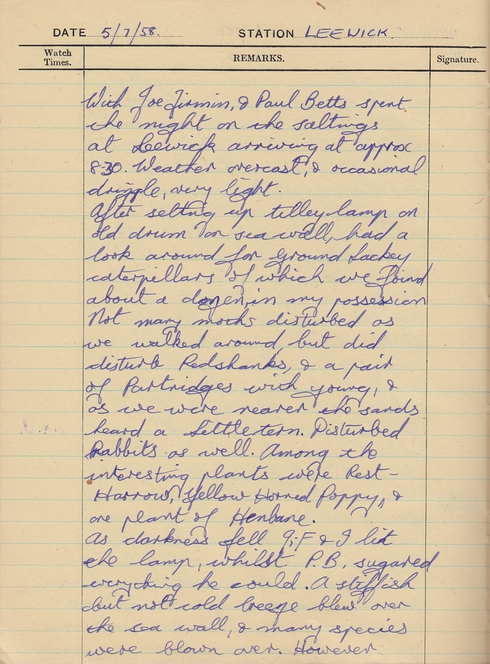 DATE 5/7/58. STATION LEEWICK.
Watch Times. REMARKS. Signature.
With Joe Firmin, & Paul Betts spent
the night on the saltings
at Leewick arriving at approx
8-30. Weather overcast, & occasional
drizzle, very light.
After setting up tilley lamp on
old drum on sea wall, had a
look around for Ground Lackey
caterpillars of which we found
about a dozen in my possession
Not many moths disturbed as
we walked around, but did
disturb Redshanks, & a pair
of Partridges with young, &
as we were nearer the sands
heard a Little tern. Disturbed
Rabbits as well. Among the
interesting plants were Rest-
Harrow, Yellow Horned Poppy, &
one plant of Henbane.
As darkness fell J.F & I lit
the lamp, whilst P.B. sugared
everything he could. A stiffish
but not cold breeze blew over
the sea wall, & many species
were blown over. However